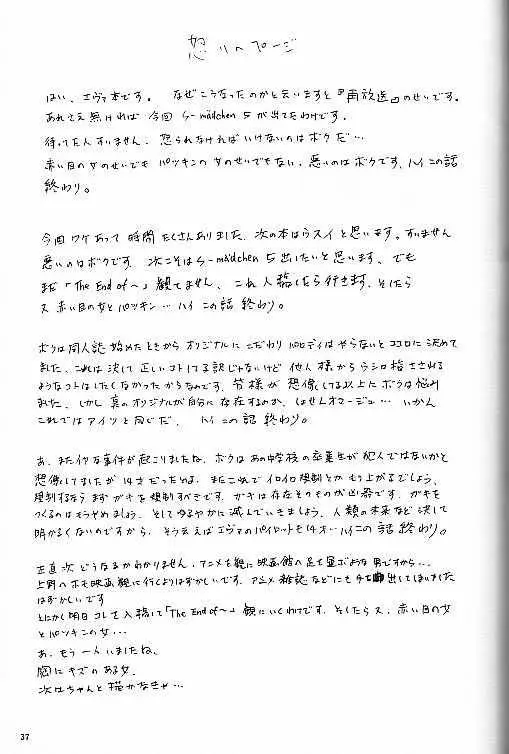 怒りのページ
はい、エヴァ本です。なぜこうなったのかと云いますと『再放送』のせいです。
あれさえ無ければ今回 S-mädchen 5 が出てたわけです。
待ってた人すいません。怒られなければいけないのはボクだ…
赤い目の女のせいでもパツキンの女のせいでもない、悪いのはボクです。ハイこの話
終わり。
今回ワケあって時間たくさんありました。次の本はウスイと思います。すいません
悪いのはボクです。次こそは S-mädchen 5 出したいと思います。でも
まだ「The End of〜」観てません。これ入稿したら行きます。そしたら
又 赤い目の女とパツキン…ハイ この話 終わり。
ボクは同人誌始めたときからオリジナルにこだわりパロディはやらないとココロに決めて
ました。これは決して正しいコトしてる訳じゃないけど他人様からうしろ指さされる
ようなコトはしたくなかったからなのです。皆様が想像してる以上にボクは悩み
ました。しかし真のオリジナルが自分に存在するのか、しょせんオマージュ…いかん
これではアイツと同じだ。ハイこの話 終わり。
あ、またイヤな事件が起こりましたね。ボクはあの中学校の卒業生が犯人ではないかと
想像してましたが14才だったとは。またこれでイロイロ規制とかもり上がるでしょう。
規制するならまずガキを規制すべきです。ガキは存在そのものが凶器です。ガキを
つくるのはもうやめましょう。そしてゆるやかに滅んでいきましょう。人類の未来など決して
明るくないのですから。そう云えばエヴァのパイロットも14才…ハイこの話 終わり。
正直次どうなるかわかりません。アニメを観に映画館へ足を運ぶような男ですから…
上野へホモ映画観に行くよりはずかしいです。アニメ雑誌などにも手を出してしまいました
はずかしいです
とにかく明日コレを入稿して「The End of〜」観にいくわけです。そしたら又、赤い目の女
とパツキンの女…
あ、もう一人いましたね、
胸にキズのある女。
次はちゃんと描かなきゃ…
37